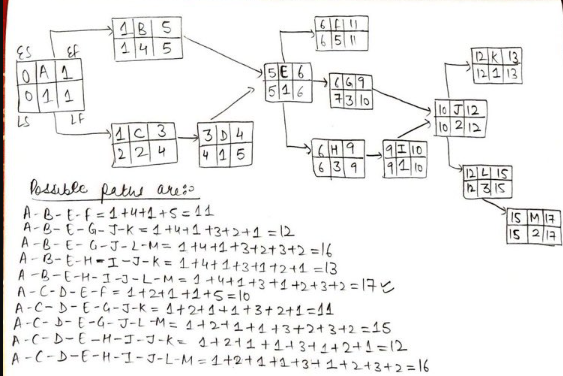 ES EF
0 A 1
0 1 1
LS LF
1 B 5
1 4 5
1 C 3
2 2 4
3 D 4
4 1 5
5 E 6
5 1 6
6 F 11
6 5 11
6 G 9
7 3 10
6 H 9
6 3 9
9 I 10
9 1 10
10 J 12
10 2 12
12 K 13
12 1 13
12 L 15
12 3 15
15 M 17
15 2 17
Possible paths are:-
A-B-E-F = 1+4+1+5 = 11
A-B-E-G-J-K = 1+4+1+3+2+1 = 12
A-B-E-G-J-L-M = 1+4+1+3+2+3+2 = 16
A-B-E-H-I-J-K = 1+4+1+3+1+2+1 = 13
A-B-E-H-I-J-L-M = 1+4+1+3+1+2+3+2 = 17 ✓
A-C-D-E-F = 1+2+1+1+5 = 10
A-C-D-E-G-J-K = 1+2+1+1+3+2+1 = 11
A-C-D-E-G-J-L-M = 1+2+1+1+3+2+3+2 = 15
A-C-D-E-H-I-J-K = 1+2+1+1+3+1+2+1 = 12
A-C-D-E-H-I-J-L-M = 1+2+1+1+3+1+2+3+2 = 16